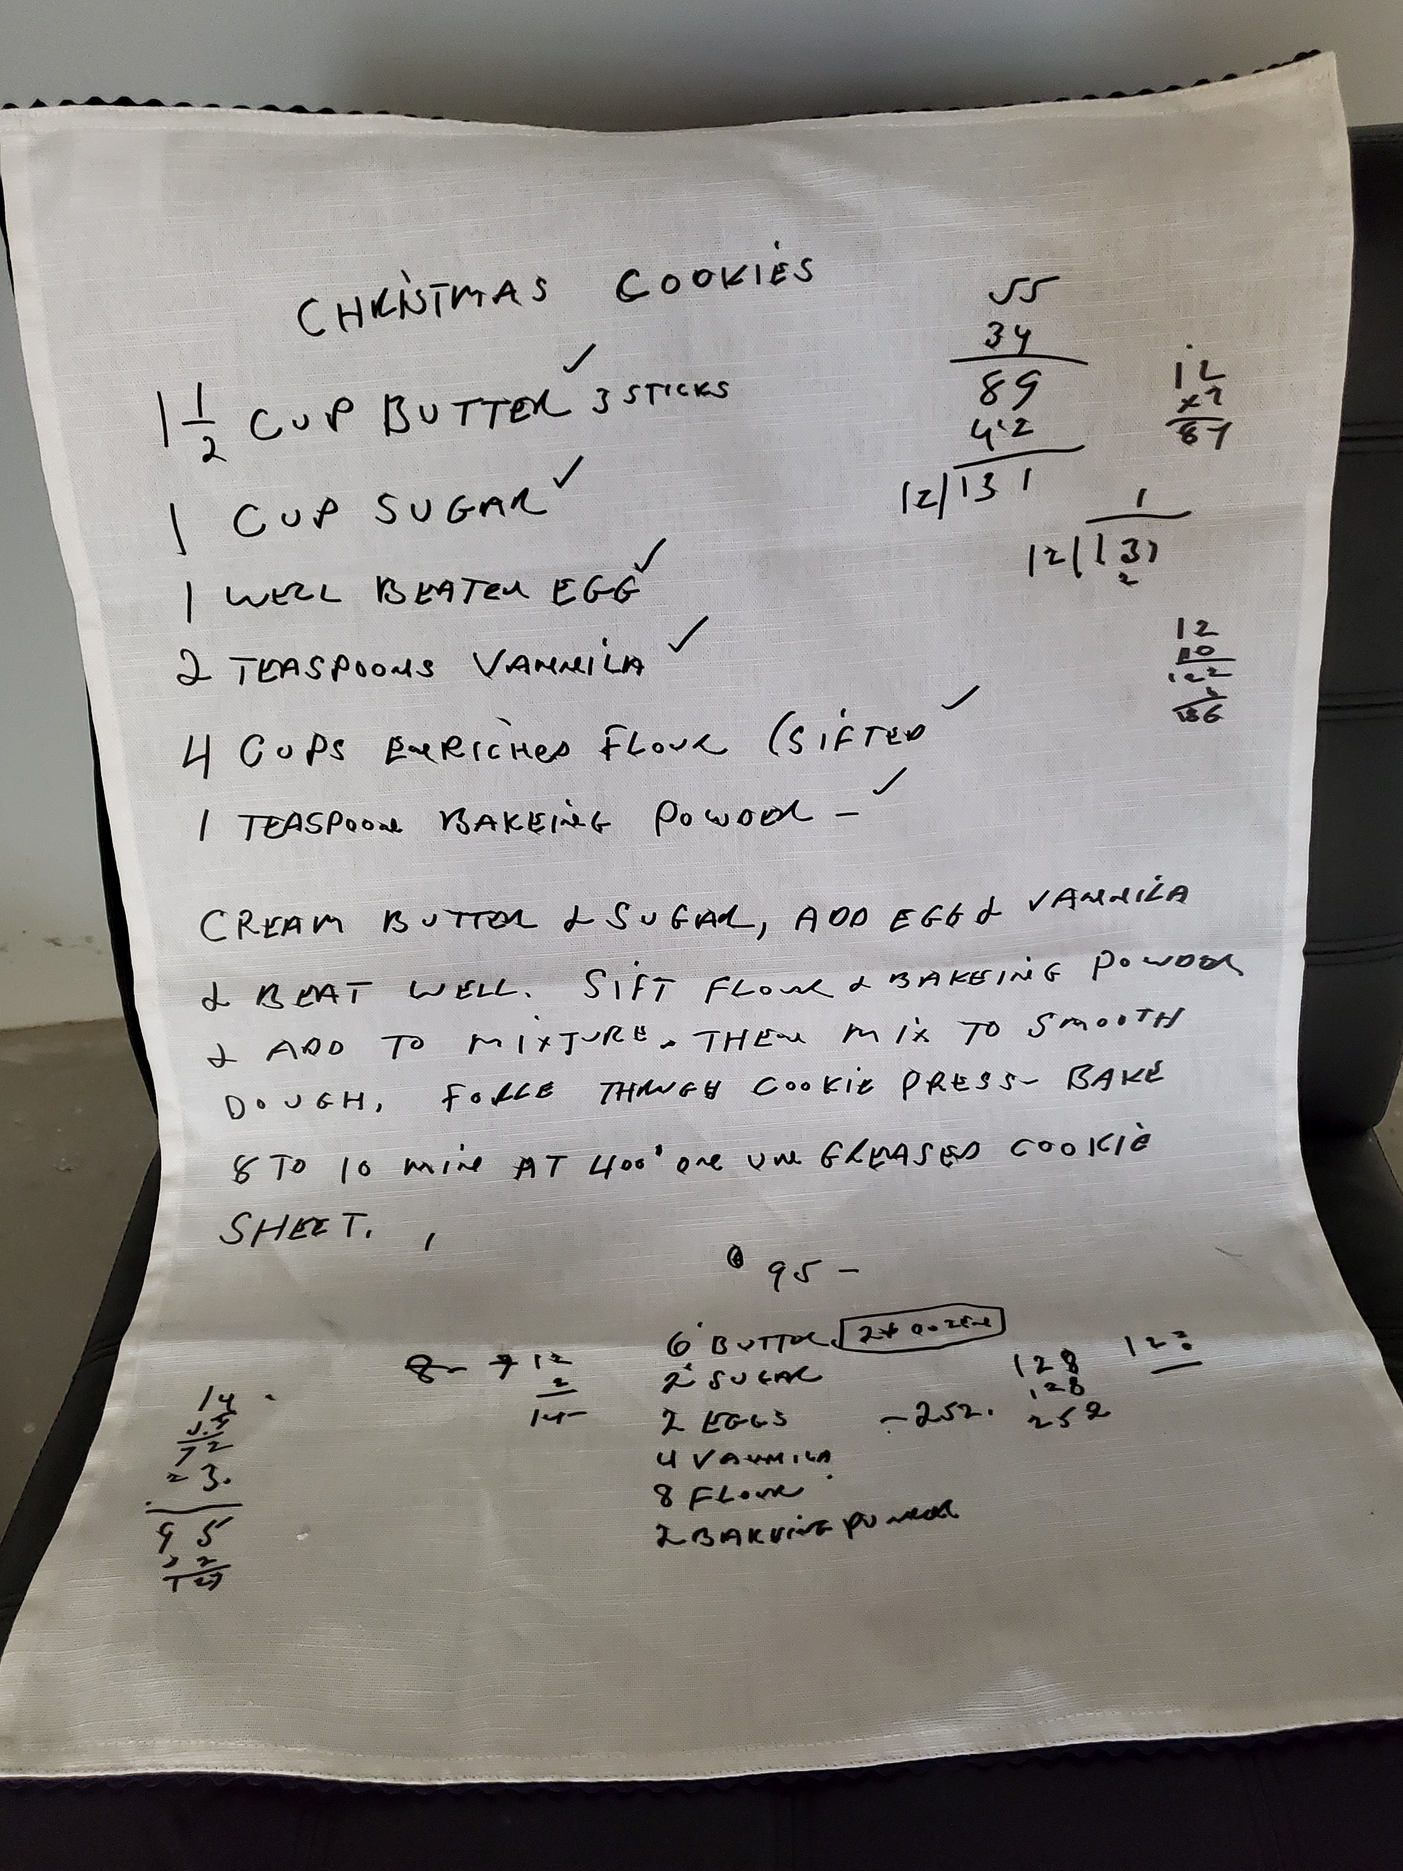 CHRISTMAS COOKIES
1 1/2 CUP BUTTER ✓ 3 STICKS
1 CUP SUGAR ✓
1 WELL BEATEN EGG ✓
2 TEASPOONS VANNILA ✓
4 CUPS ENRICHED FLOUR (SIFTED ✓
1 TEASPOON BAKEING POWDER - ✓
55
34
89
42
12)131
12
x7
87
1
12)131
2
12
10
122
136
CREAM BUTTER & SUGAR, ADD EGG & VANNILA
& BEAT WELL. SIFT FLOUR & BAKEING POWDER
& ADD TO MIXTURE. THEN MIX TO SMOOTH
DOUGH, FORCE THROUGH COOKIE PRESS- BAKE
8 TO 10 MIN AT 400° ON UN GREASED COOKIE
SHEET.
95 -
6 BUTTER
2 SUGAR
2 EGGS
4 VANNILA
8 FLOUR
2 BAKEING POWDER
12
2
14-
128
128
252
-252.
14
72
3.
95